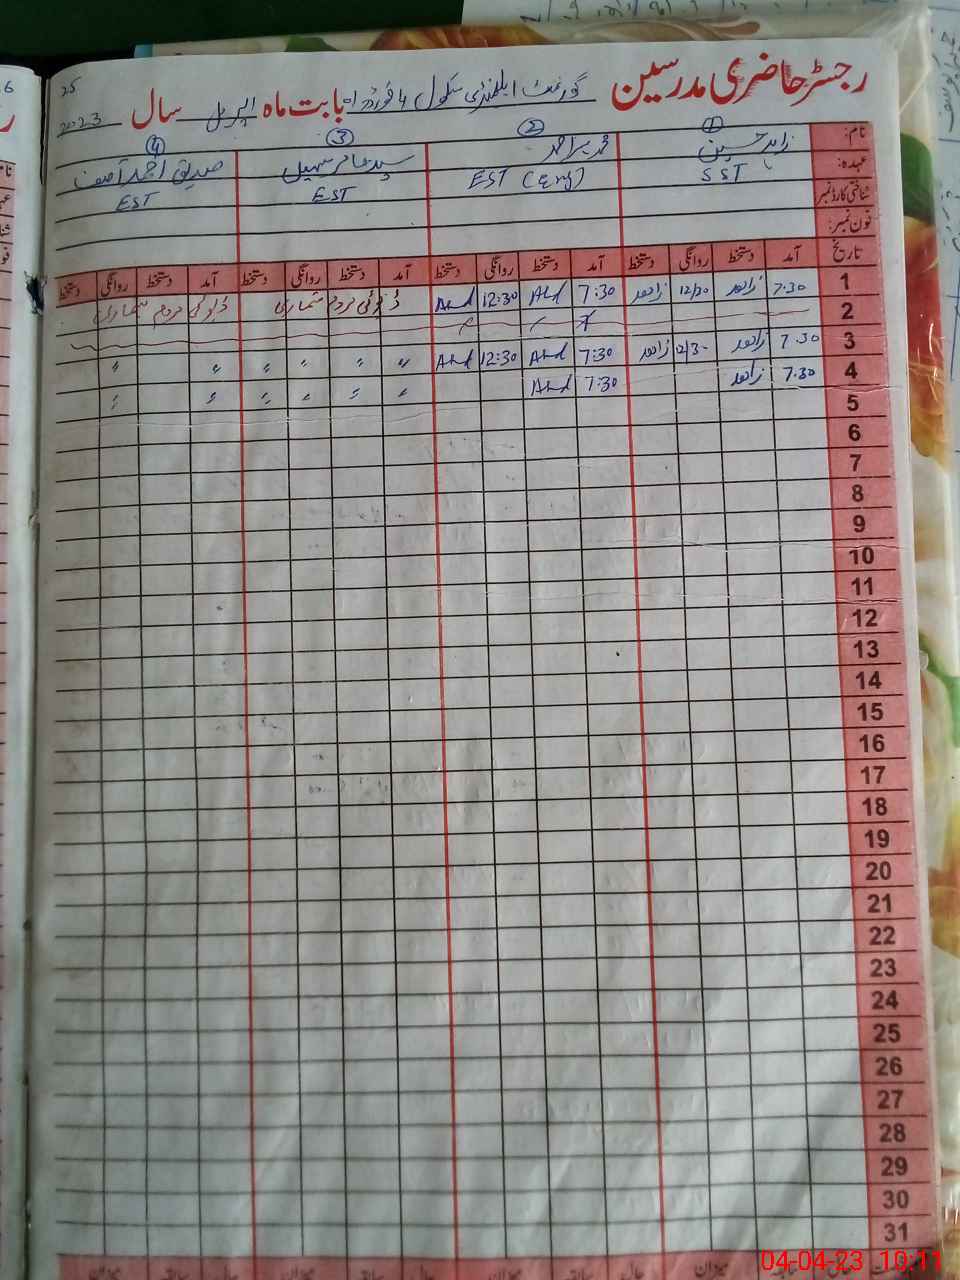 25
رجسٹر حاضری مدرسین گورنمنٹ ایلمنٹری سکول 4 فورڈ واہ بابت ماہ اپریل سال 2023
نام: ① زاہد حسین ② محمد ③ سید عامر سہیل ④ صدیق احمد آصف
عہدہ: SST EST (Eng) EST EST
شناختی کارڈ نمبر
فون نمبر:
تاریخ آمد دستخط روانگی دستخط آمد دستخط روانگی دستخط آمد دستخط روانگی دستخط آمد دستخط روانگی دستخط
1 7:30 زاہد 12/30 زاہد 7:30 Ahd 12:30 Ahd ڈیوٹی مردم شماری ڈیوٹی مردم شماری
2
3 7.30 زاہد 12/30 زاہد 7:30 Ahd 12:30 Ahd 〃 〃 〃 〃 〃 〃
4 7.30 زاہد 7:30 Ahd 〃 〃 〃 〃 〃 〃
5
6
7
8
9
10
11
12
13
14
15
16
17
18
19
20
21
22
23
24
25
26
27
28
29
30
31
میزان میزان میزان
04-04-23 10:11